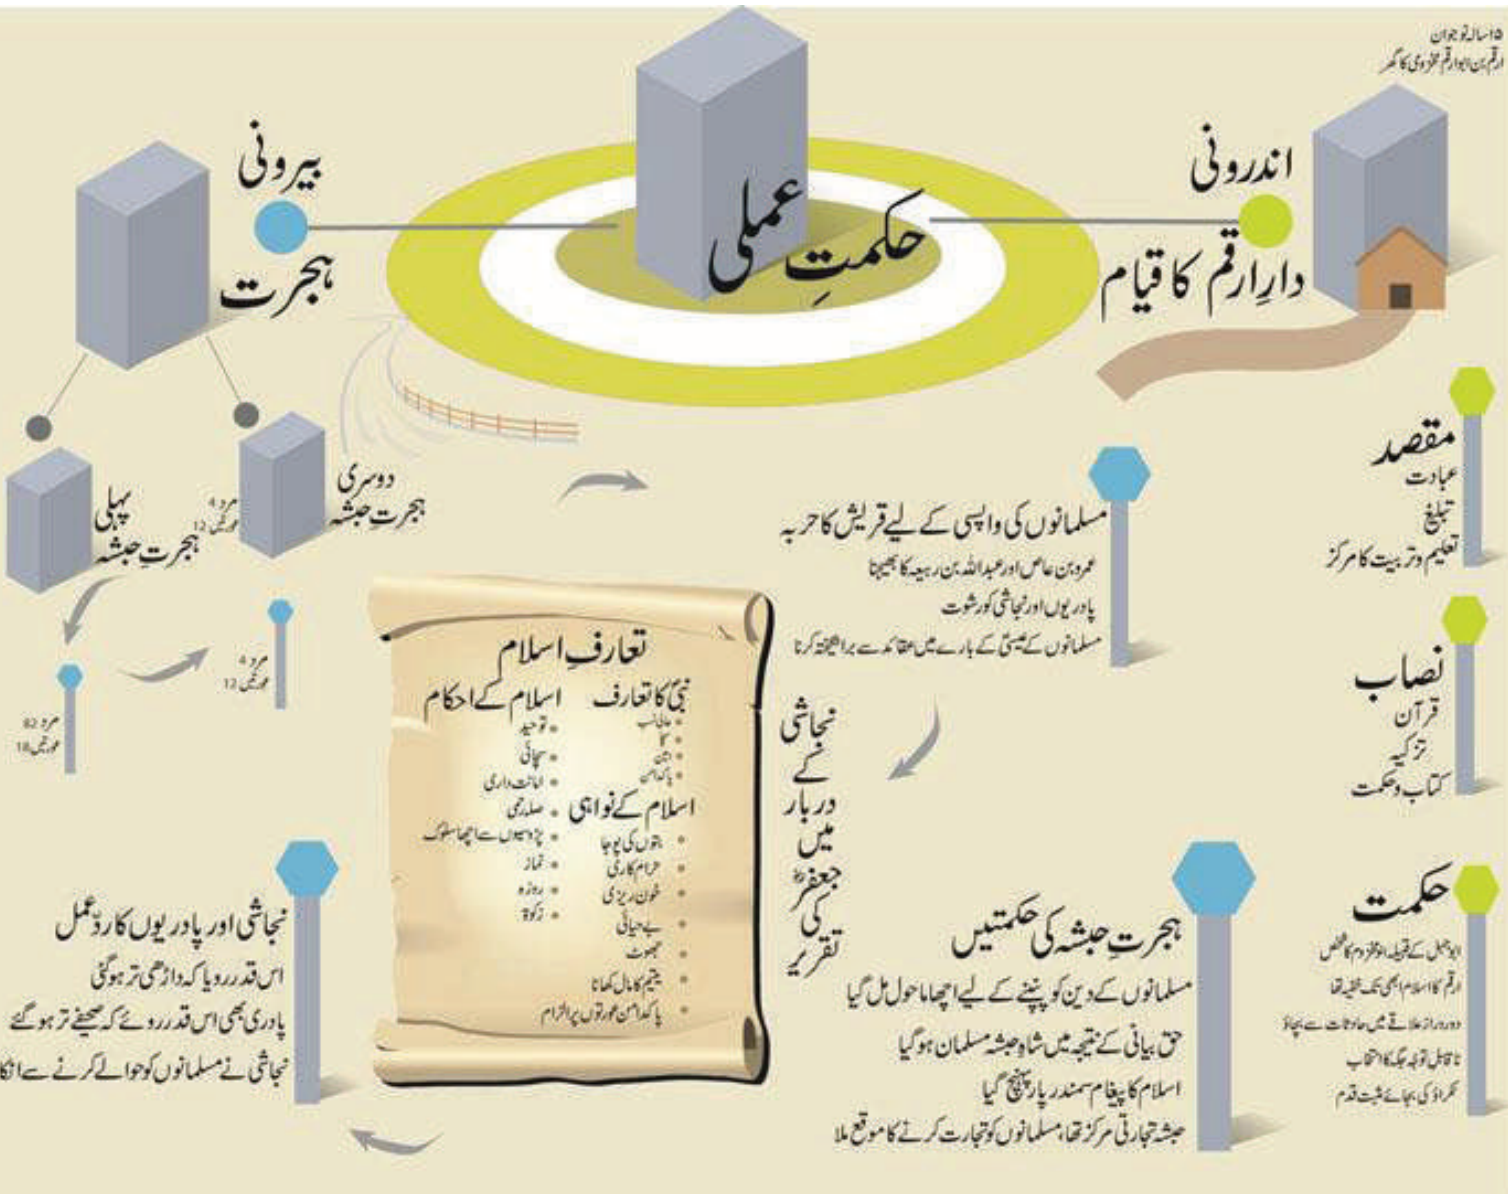 ۱۵سالہ نوجوان
ارقم بن ابوارقم مخزومی کا گھر
حکمتِ عملی
اندرونی
دارِ ارقم کا قیام
بیرونی
ہجرت
مقصد
عبادت
تبلیغ
تعلیم وتربیت کا مرکز
نصاب
قرآن
تزکیہ
کتاب وحکمت
حکمت
ابوجہل کے قبیلہ بنومخزوم کا شخص
ارقم کا اسلام ابھی تک خفیہ تھا
دوردراز علاقے میں حادثات سے بچاؤ
ناقابل توجہ جگہ کا انتخاب
ٹکراؤ کی بجائے مثبت قدم
پہلی
ہجرتِ حبشہ
دوسری
ہجرتِ حبشہ
مرد 4
عورتیں 12
مرد 4
عورتیں 12
مرد 82
عورتیں 18
مسلمانوں کی واپسی کے لیے قریش کا حربہ
عمرو بن عاص اور عبداللہ بن ربیعہ کا بھیجنا
پادریوں اور نجاشی کو رشوت
مسلمانوں کے عیسیٰؑ کے بارے میں عقائد سے برانگیختہ کرنا
نجاشی
کے
دربار
میں
جعفرؓ
کی
تقریر
تعارفِ اسلام
نبیؐ کا تعارف
عالی نسب
سچا
امین
پاکدامن
اسلام کے نواہی
بتوں کی پوجا
حرام کاری
خون ریزی
بے حیائی
جھوٹ
یتیم کا مال کھانا
پاکدامن عورتوں پر الزام
اسلام کے احکام
توحید
سچائی
امانت داری
صلہ رحمی
پڑوسیوں سے اچھا سلوک
نماز
روزہ
زکوٰۃ
ہجرتِ حبشہ کی حکمتیں
مسلمانوں کے دین کو پنپنے کے لیے اچھا ماحول مل گیا
حق بیانی کے نتیجہ میں شاہِ حبشہ مسلمان ہوگیا
اسلام کا پیغام سمندر پار پہنچ گیا
حبشہ تجارتی مرکز تھا، مسلمانوں کو تجارت کرنے کا موقع ملا
نجاشی اور پادریوں کا ردِّعمل
اس قدر رویا کہ داڑھی تر ہوگئی
پادری بھی اس قدر روئے کہ صحیفے تر ہوگئے
نجاشی نے مسلمانوں کو حوالے کرنے سے